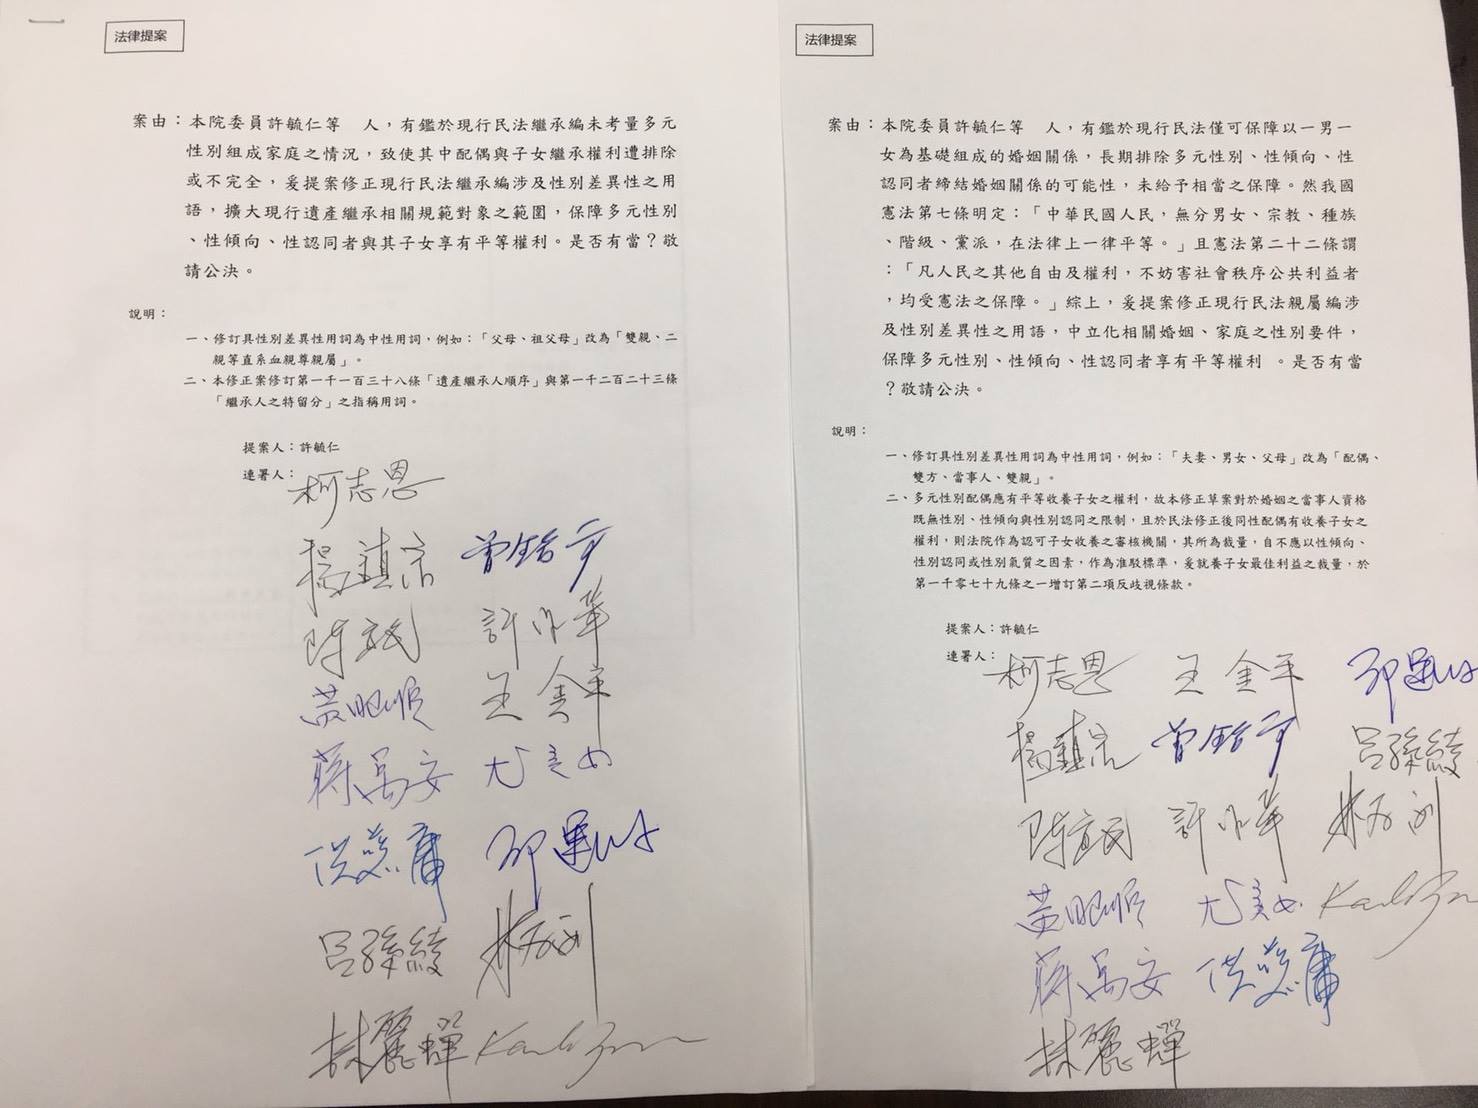 法律提案
案由：本院委員許毓仁等　人，有鑑於現行民法繼承編未考量多元
性別組成家庭之情況，致使其中配偶與子女繼承權利遭排除
或不完全，爰提案修正現行民法繼承編涉及性別差異性之用
語，擴大現行遺產繼承相關規範對象之範圍，保障多元性別
、性傾向、性認同者與其子女享有平等權利。是否有當？敬
請公決。
說明：
一、修訂具性別差異性用詞為中性用詞，例如：「父母、祖父母」改為「雙親、二
親等直系血親尊親屬」。
二、本修正案修訂第一千一百三十八條「遺產繼承人順序」與第一千二百二十三條
「繼承人之特留分」之指稱用詞。
提案人：許毓仁
連署人：柯志恩
楊鎮浯 曾銘宗
陳宜民 許淑華
黃昭順 王金平
蔣萬安 尤美女
洪慈庸
呂孫綾
林麗蟬
法律提案
案由：本院委員許毓仁等　人，有鑑於現行民法僅可保障以一男一
女為基礎組成的婚姻關係，長期排除多元性別、性傾向、性
認同者締結婚姻關係的可能性，未給予相當之保障。然我國
憲法第七條明定：「中華民國人民，無分男女、宗教、種族
、階級、黨派，在法律上一律平等。」且憲法第二十二條謂
：「凡人民之其他自由及權利，不妨害社會秩序公共利益者
，均受憲法之保障。」綜上，爰提案修正現行民法親屬編涉
及性別差異性之用語，中立化相關婚姻、家庭之性別要件，
保障多元性別、性傾向、性認同者享有平等權利 。是否有當
？敬請公決。
說明：
一、修訂具性別差異性用詞為中性用詞，例如：「夫妻、男女、父母」改為「配偶、
雙方、當事人、雙親」。
二、多元性別配偶應有平等收養子女之權利，故本修正草案對於婚姻之當事人資格
既無性別、性傾向與性別認同之限制，且於民法修正後同性配偶有收養子女之
權利，則法院作為認可子女收養之審核機關，其所為裁量，自不應以性傾向、
性別認同或性別氣質之因素，作為准駁標準，爰就養子女最佳利益之裁量，於
第一千零七十九條之一增訂第二項反歧視條款。
提案人：許毓仁
連署人：柯志恩 王金平
楊鎮浯 曾銘宗 呂孫綾
陳宜民 許淑華
黃昭順 尤美女
蔣萬安 洪慈庸
林麗蟬